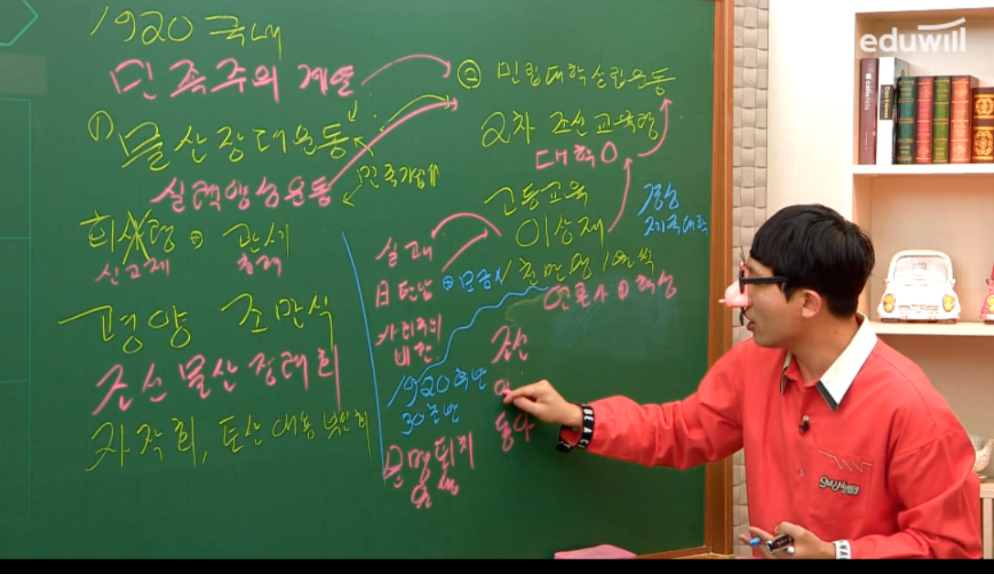 eduwill
1920 국내
민족주의 계열
① 물산장려운동
실력양성운동
민족기업↑
회사령 ⊕ 관세
신고제 철폐
평양 조만식
조선물산장려회
자작회, 토산애용부인회
② 민립대학설립운동
2차 조선교육령
대학O
고등교육
이상재
경성
제국대학
1천만명 1원씩
실패
日 탄압 ⊕ 모금X
사회주의
비판
언론사 ⊕ 학생
1920후반
30초반
문맹퇴치
조선
동아